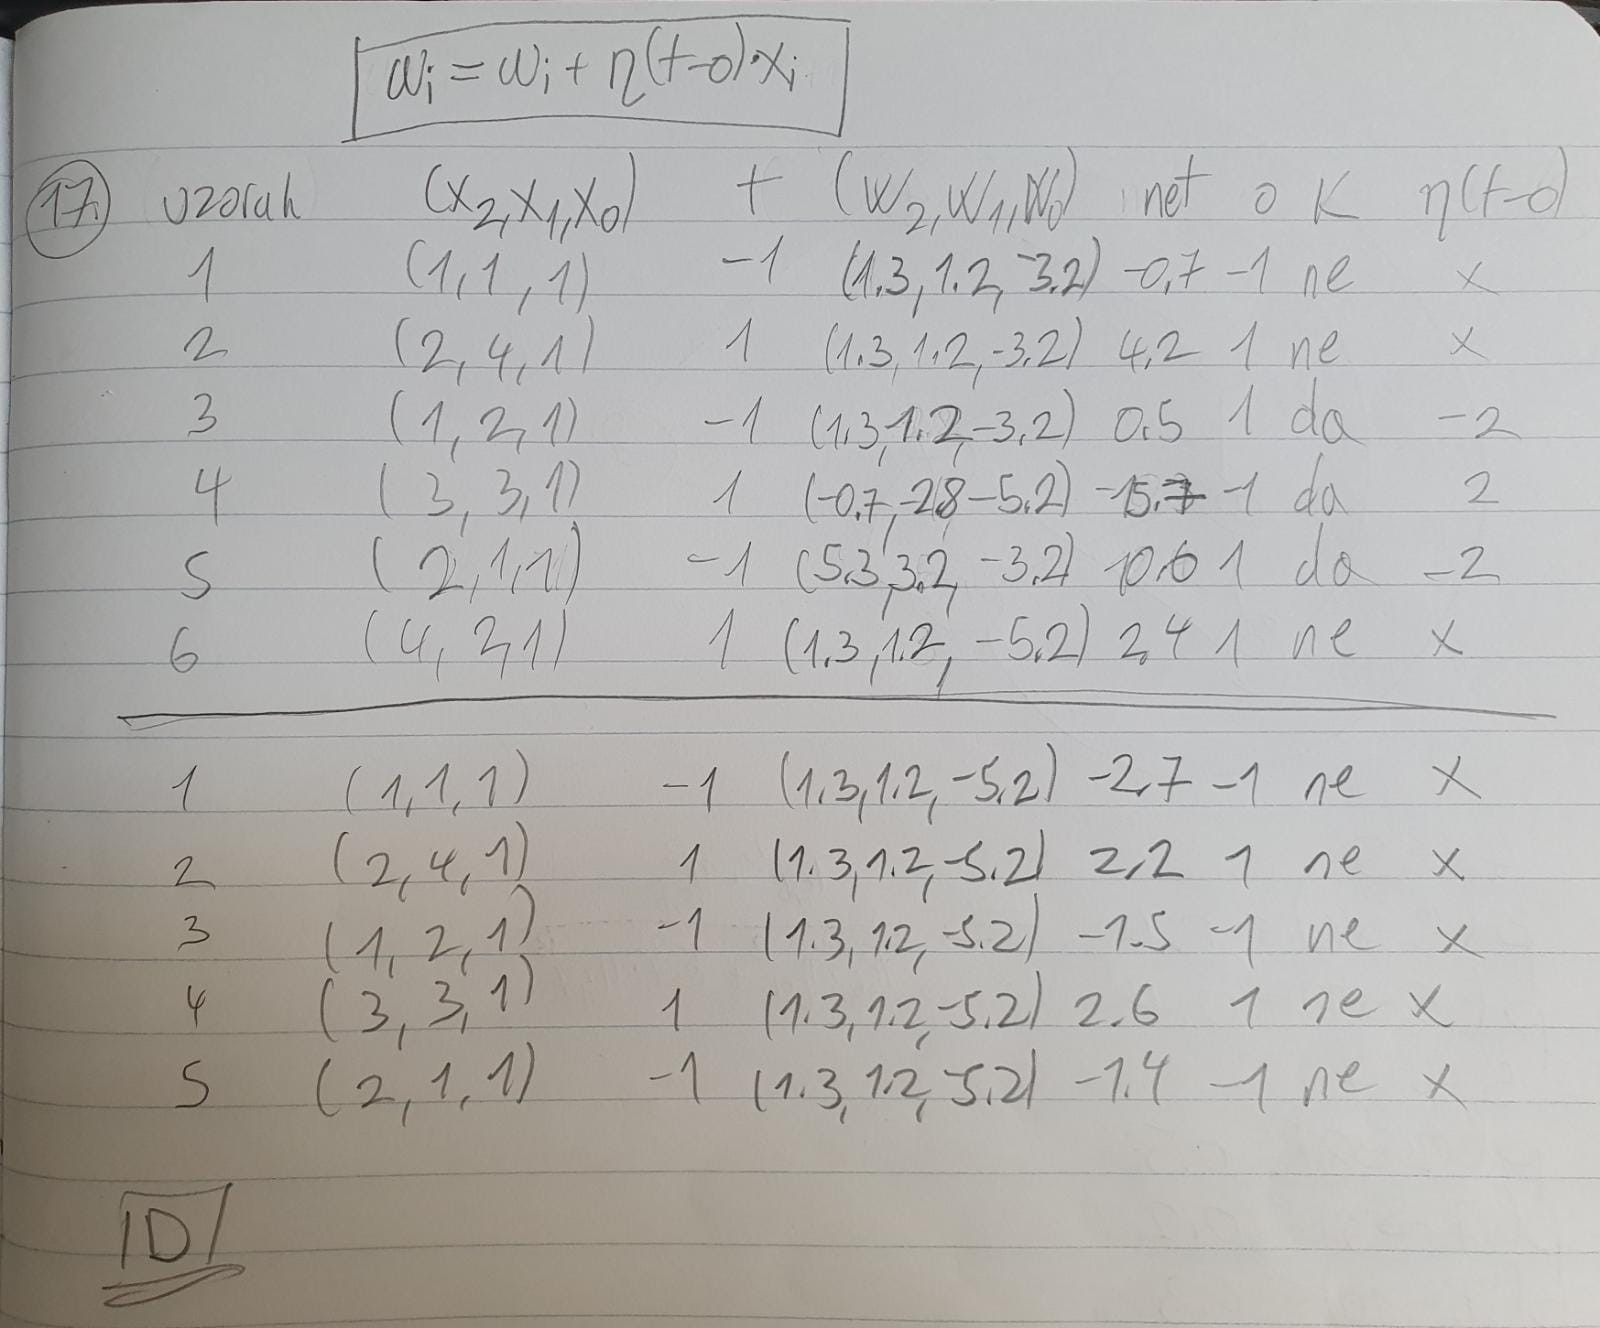 wi = wi + η(t-o)·xi
17. uzorak (x2,x1,x0) t (w2,w1,w0) net o K η(t-o)
1 (1,1,1) -1 (1.3,1.2,-3.2) -0.7 -1 ne x
2 (2,4,1) 1 (1.3,1.2,-3.2) 4.2 1 ne x
3 (1,2,1) -1 (1.3,1.2,-3.2) 0.5 1 da -2
4 (3,3,1) 1 (-0.7,-2.8,-5.2) -15.7 -1 da 2
5 (2,1,1) -1 (5.3,3.2,-3.2) 10.6 1 da -2
6 (4,2,1) 1 (1.3,1.2,-5.2) 2.4 1 ne x
1 (1,1,1) -1 (1.3,1.2,-5.2) -2.7 -1 ne x
2 (2,4,1) 1 (1.3,1.2,-5.2) 2.2 1 ne x
3 (1,2,1) -1 (1.3,1.2,-5.2) -1.5 -1 ne x
4 (3,3,1) 1 (1.3,1.2,-5.2) 2.6 1 ne x
5 (2,1,1) -1 (1.3,1.2,-5.2) -1.4 -1 ne x
D